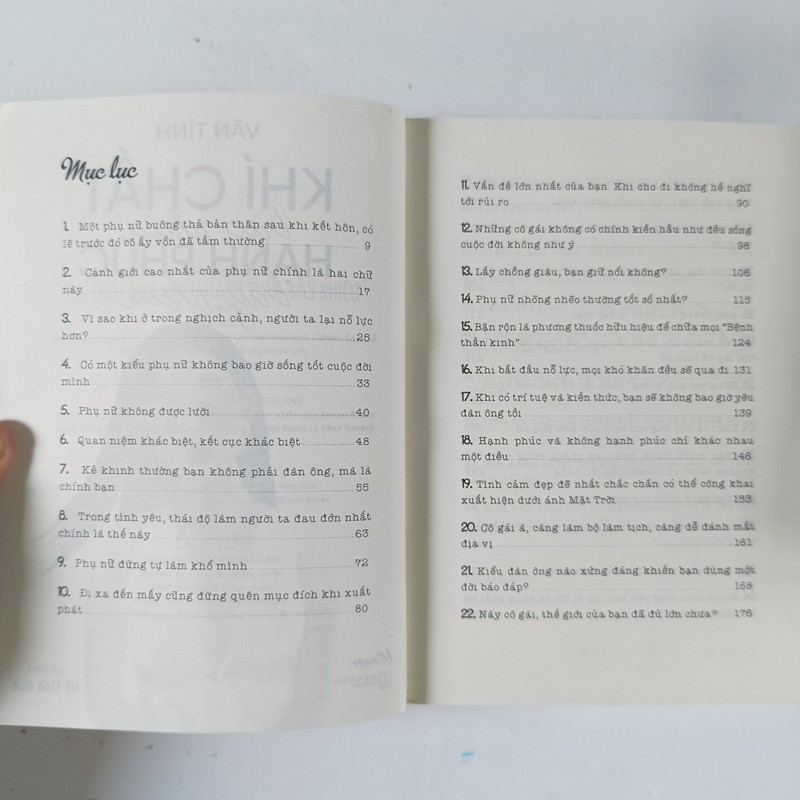 Mục lục
1. Một phụ nữ buông thả bản thân sau khi kết hôn, có
lẽ trước đó cô ấy vốn đã tầm thường 9
2. Cảnh giới cao nhất của phụ nữ chính là hai chữ
này 17
3. Vì sao khi ở trong nghịch cảnh, người ta lại nỗ lực
hơn? 25
4. Có một kiểu phụ nữ không bao giờ sống tốt cuộc đời
mình 33
5. Phụ nữ không được lười 40
6. Quan niệm khác biệt, kết cục khác biệt 48
7. Kẻ khinh thường bạn không phải đàn ông, mà là
chính bạn 55
8. Trong tình yêu, thái độ làm người ta đau đớn nhất
chính là thế này 63
9. Phụ nữ đừng tự làm khổ mình 72
10. Đi xa đến mấy cũng đừng quên mục đích khi xuất
phát 80
11. Vấn đề lớn nhất của bạn Khi cho đi không hề nghĩ
tới rủi ro 90
12. Những cô gái không có chính kiến hầu như đều sống
cuộc đời không như ý 98
13. Lấy chồng giàu, bạn giữ nổi không? 106
14. Phụ nữ nhõng nhẽo thường tốt số nhất? 115
15. Bận rộn là phương thuốc hữu hiệu để chữa mọi "Bệnh
thần kinh" 124
16. Khi bắt đầu nỗ lực, mọi khó khăn đều sẽ qua đi 131
17. Khi có trí tuệ và kiến thức, bạn sẽ không bao giờ yêu
đàn ông tồi 139
18. Hạnh phúc và không hạnh phúc chỉ khác nhau
một điều 146
19. Tình cảm đẹp đẽ nhất chắc chắn có thể công khai
xuất hiện dưới ánh Mặt Trời 153
20. Cô gái à, càng làm bộ làm tịch, càng dễ đánh mất
địa vị 161
21. Kiểu đàn ông nào xứng đáng khiến bạn dùng một
đời báo đáp? 168
22. Này cô gái, thế giới của bạn đã đủ lớn chưa? 176
VÃN TÌNH
KHÍ CHẤT
HẠNH PHÚC